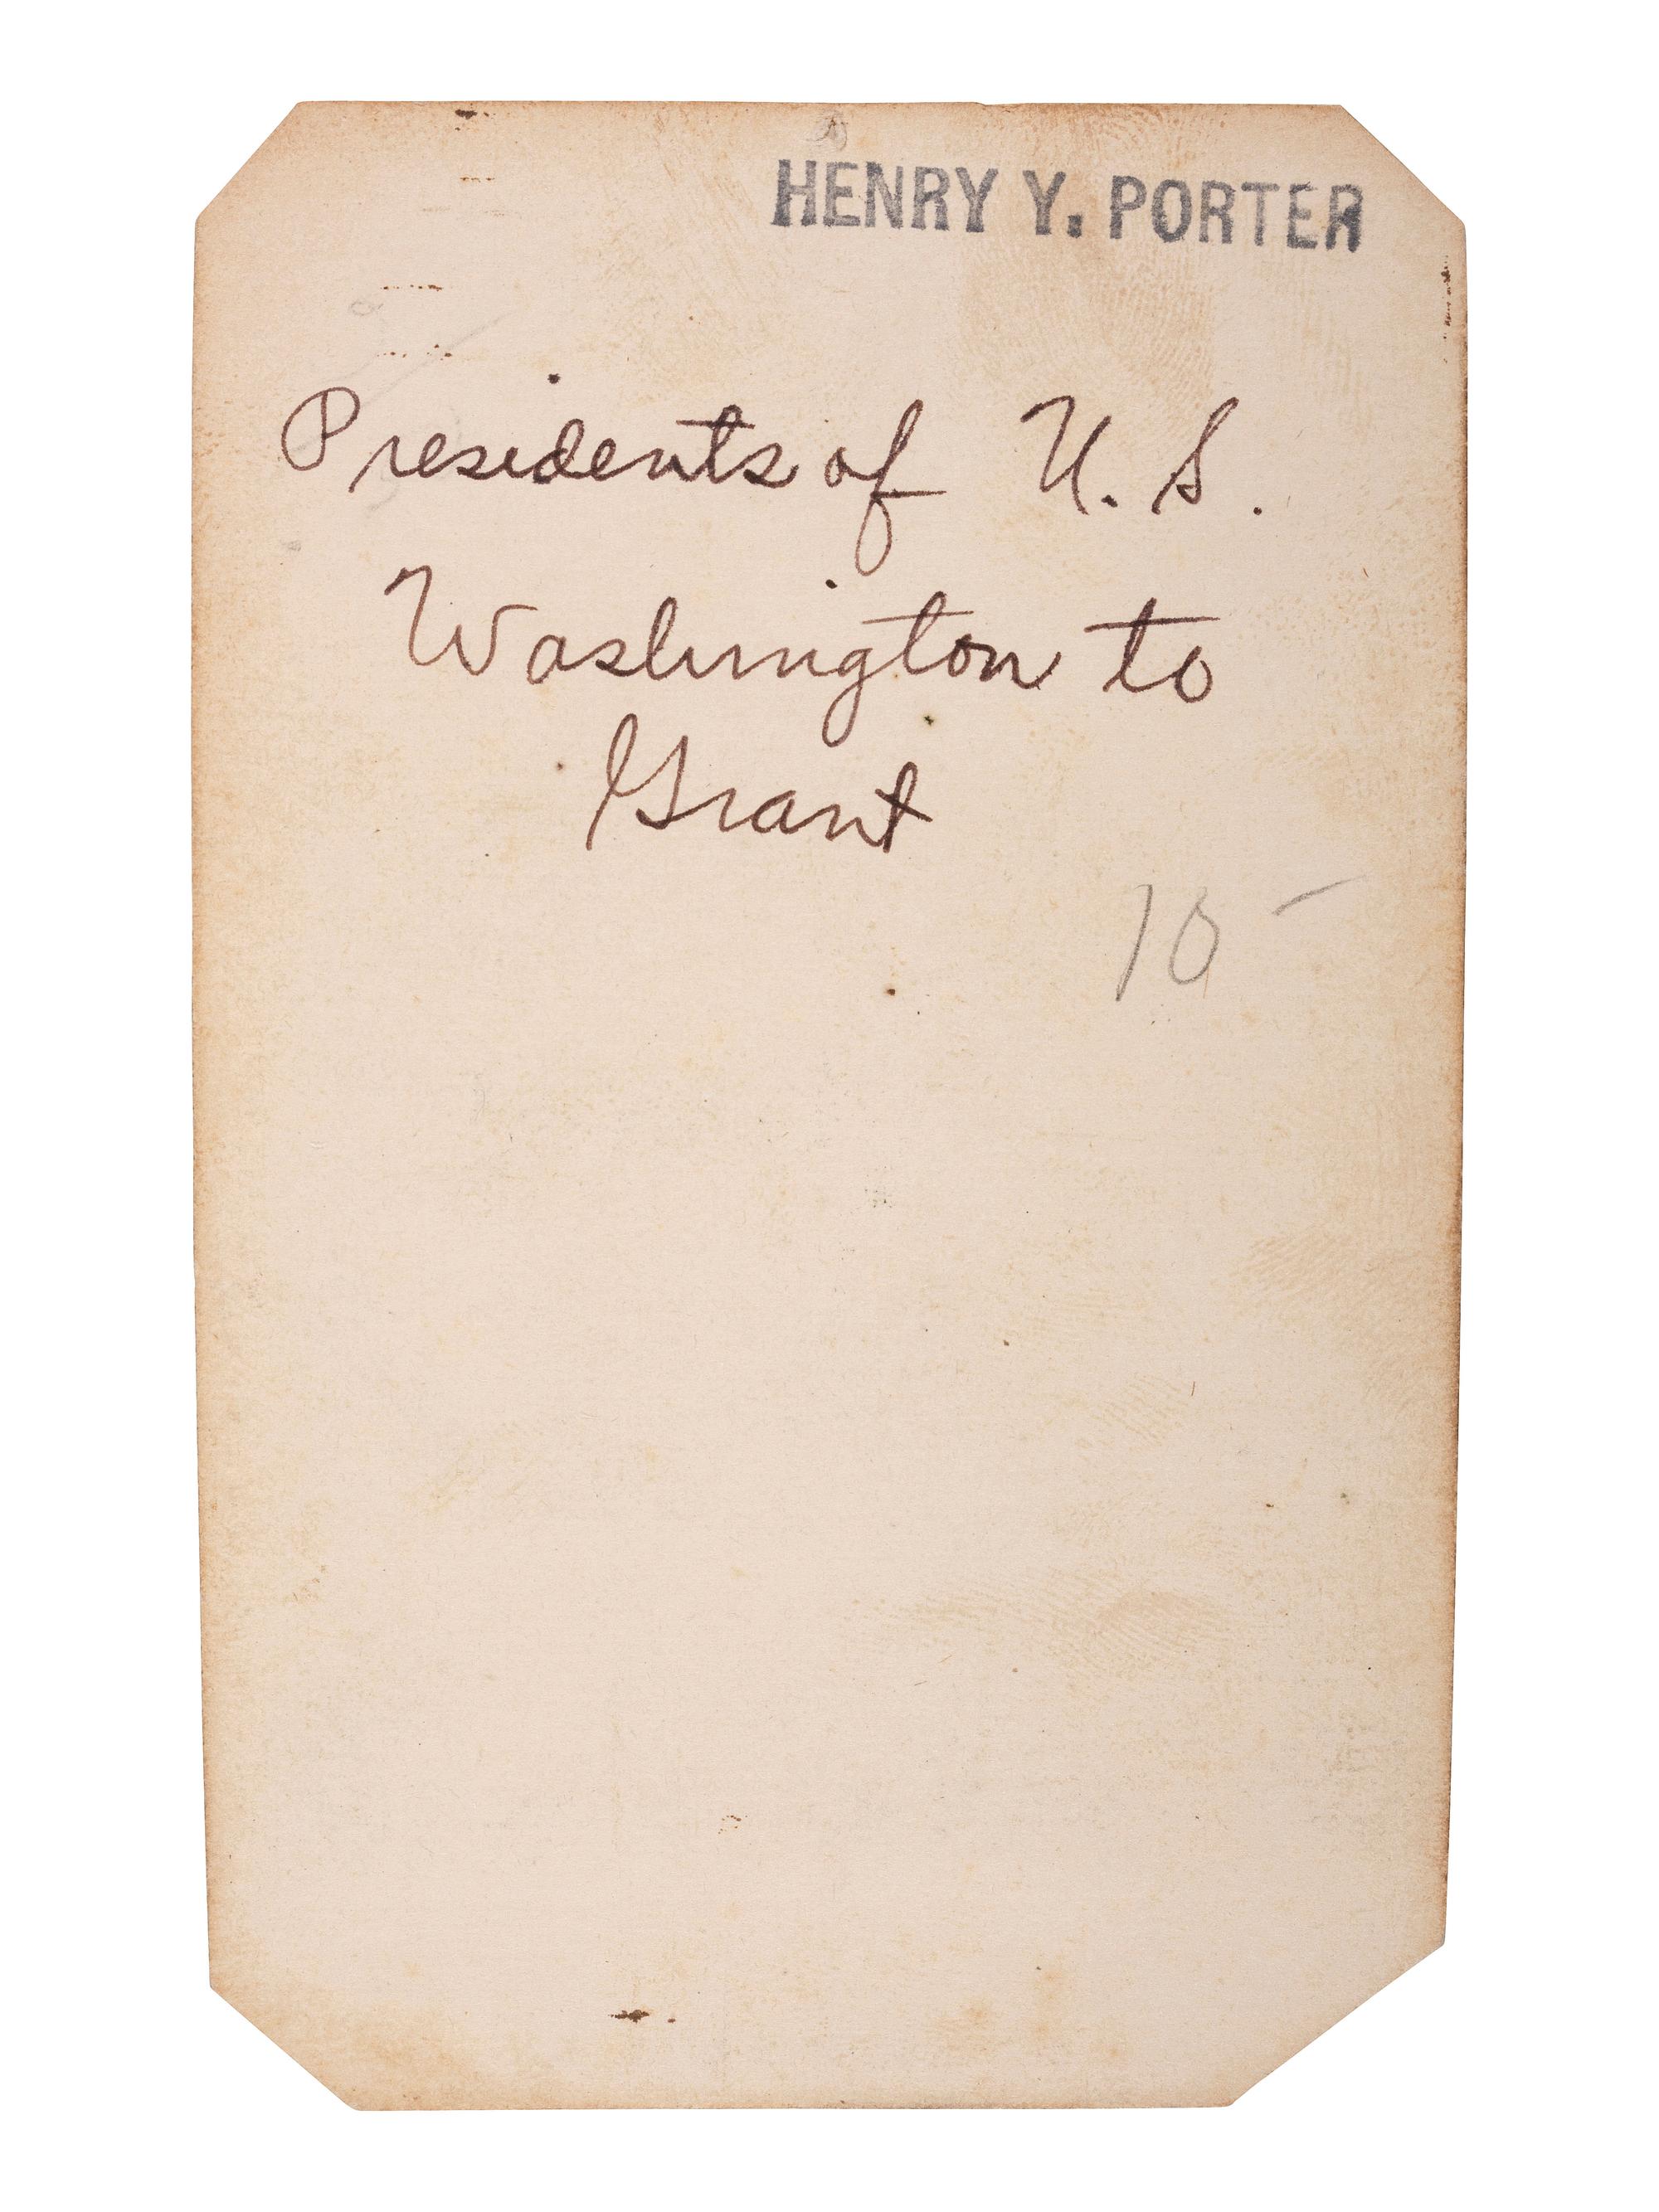 HENRY Y. PORTER
Presidents of U. S.
Washington to
Grant
10 –